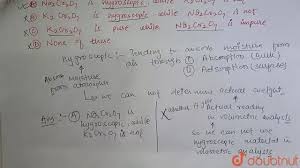 Na2Cr2O7 is hygroscopic while
K2Cr2O7 is hygroscopic while Na2Cr2O7 is not
K2Cr2O7 is pure while Na2Cr2O7 is impure
None of these
hygroscopic:- Tending to moisture from
air through ① Absorption (Bulk)
② Adsorption (surface)
Absorb moisture
from
↳ we can not determine actual weight
Ans:- Ⓐ Na2Cr2O7 is
hygroscopic while
K2Cr2O7 is not
Actual reading
in volumetric analysis
so we can not use
hygroscopic material in
volumetric analysis
doubtnut